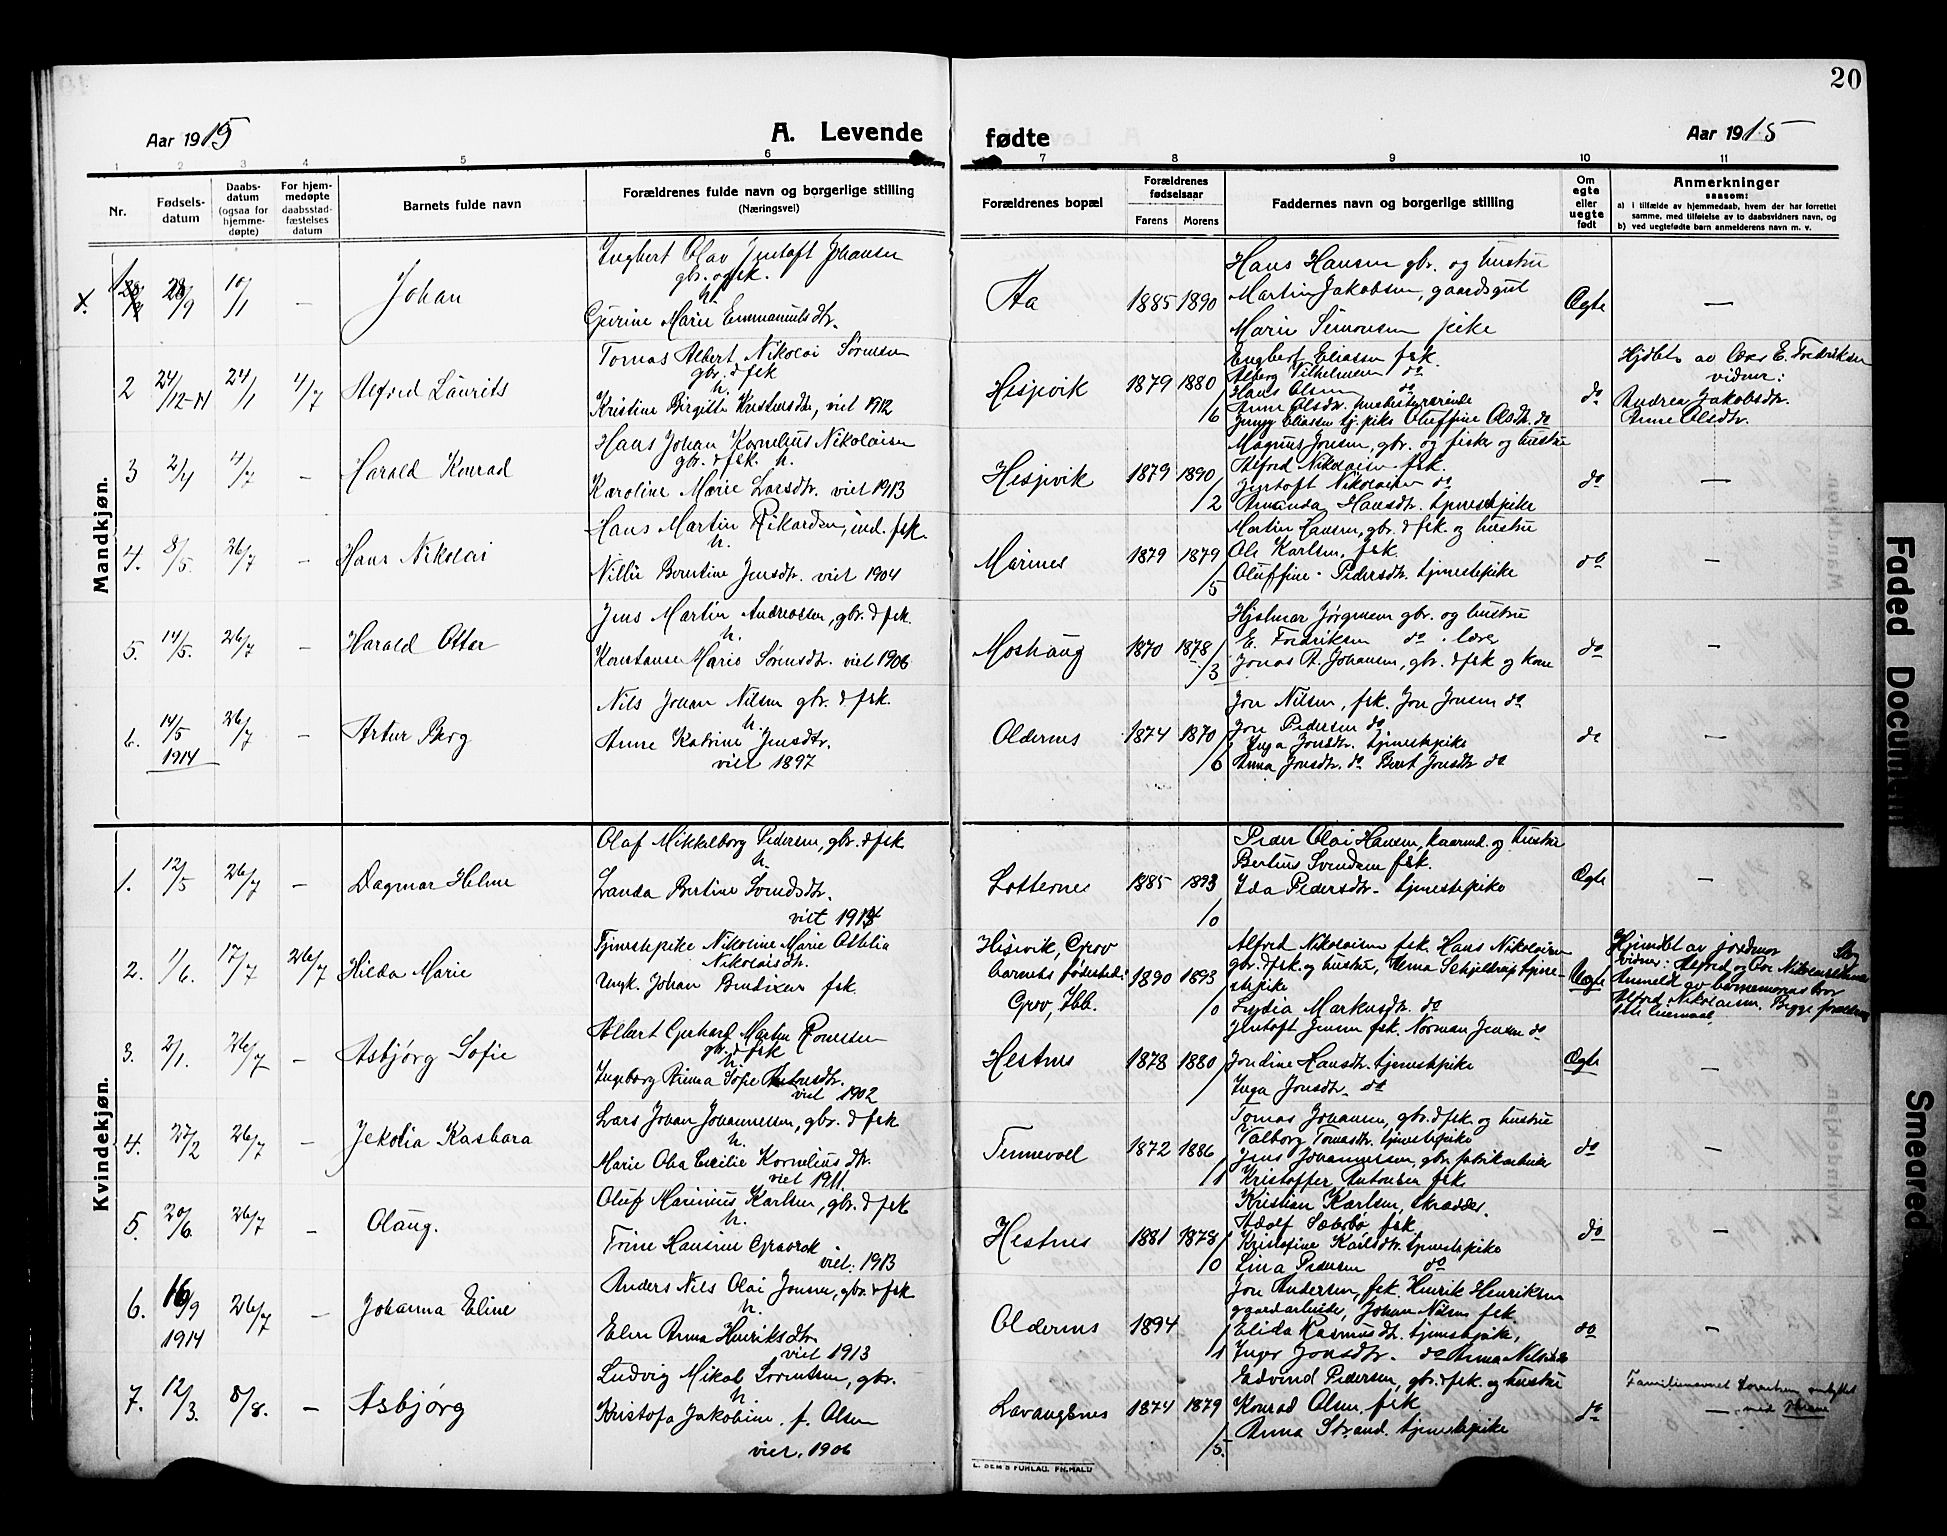 20
Aar 1915
A. Levende fødte
Aar 1915
1 2 3 4 5 6 7 8 9 10 11
Nr.
Fødsels-
datum
Daabs-
datum
(ogsaa for
hjemme-
døpte)
For hjem-
medøpte
daabsstad-
fæstelses
datum
Barnets fulde navn
Forældrenes fulde navn og borgerlige stilling
(Næringsvei)
Forældrenes bopæl
Forældrenes
fødselsaar
Farens Morens
Faddernes navn og borgerlige stilling
Om
egte
eller
uegte
født
Anmerkninger
saasom:
a) i tilfælde av hjemmedaab, hvem der har forrettet
samme, med tilføielse av to daabsvidners navn, og
b) ved uegtefødte barn anmelderens navn m. v.
Mandkjøn.
x. 28/9 10/1 — Johan
Ingbert Olav Jentoft Johansen
gbr. og fsk.
h.
Gurine Marie Emmanuelsdtr.
Aa 1885 1890
Hans Hansen gbr. og hustru
Martin Jakobsen, gaardsgut
Marie Simonsen pike
Ægte —
2 24/12-14 24/1 4/7 Alfred Laurits
Tomas Albert Nikolai Sørensen
gbr. & fsk
h.
Kristine Birgitte Kristensdtr, viet 1912
Hesjevik 1879 1880 / 6
Engbert Eliassen fsk.
Alberg Vilhelmsen do
Hans Olsen do
Anne Olsdtr. husbestyrerinde
Jenny Eliassen tj. pike Oluffine Olsdtr. do
do
Hjdbt. av lærer E. Fredriksen
vidner:
Andrea Jakobsdtr.
Anne Olsdtr.
3 2/4 4/7 Harald Konrad
Hans Johan Kornelius Nikolaisen
gbr. & fsk. h.
Karoline Marie Larsdtr. viet 1913
Hesjevik 1879 1890 / 2
Magnus Jensen, gbr. og fisker og hustru
Alfred Nikolaisen fsk.
Jentoft Nikolaisen do
Amanda Hansdtr. tjenestepike
do —
4. 8/5. 26/7 — Hans Nikolai
Hans Martin Rikardsen, ind. fsk.
h.
Nillie Berntine Jensdtr. viet 1904
Marines 1879 1879 / 5
Martin Hansen, gbr. & fsk. og hustru
Ole Karlsen, fsk.
Oluffine Pedersdtr. tjenestepike
do —
5. 14/5. 26/7 — Harald Ottar
Jens Martin Andreassen, gbr. & fsk.
h.
Konstanse Marie Sørensdtr. viet 1906
Moshaug 1870 1878 / 3
Hjalmar Jørgensen gbr. og hustru
E. Fredriksen do. lærer
Jonas A. Johansen, gbr. & fsk og kone
do —
6. 14/5 1914 26/7 — Artur Berg
Nils Johan Nilsen gbr. & fsk.
h.
Anne Katrine Jensdtr.
viet 1897
Oldernes 1874 1870 / 6
Jon Nilsen, fsk. Jon Jensen do
Jon Pedersen do
Inga Jonsdtr. tjenestepike
Anna Jonsdtr. do Berit Jonsdtr do
do —
Kvindekjøn.
1. 12/5 26/7 — Dagmar Helene
Olaf Mikkelborg Pedersen, gbr. & fsk
h.
Landa Bertine Svendsdtr.
viet 1914
Lotternes 1885 1893 / 0
Peder Olai Hansen, kaarmd. og hustru
Berlius Svendsen fsk.
Ida Pedersdtr. tjenestepike
Ægte —
2. 1/6. 17/7 26/7 Hilda Marie
Tjenestepike Nikoline Marie Ottilia
Nikolaisdtr.
Ungk. Johan Bendixen fsk.
Hesjevik, Grov
barnets fødested:
Grov, Ibb. 1890 1893 / 0
Alfred Nikolaisen fsk. Hans Nikolaisen
gbr. & fsk. og hustru, Anna Schjeldrup tjene-
stepike
Lydia Markusdtr. do
Uegte
Hjemdbt av jordmor
vidner: Alfred og
Anmeldt av barnemorens bror
Alfred Nikolaisen. Begge forældres
1ste leiermaal.
3. 2/1. 26/7 — Asbjørg Sofie
Albert Gerhard Martin
gbr. & fsk
h.
Ingeborg Anna Sofie Antonsdtr.
viet 1902
Hestnes 1878 1880 / 1
Jentoft Jensen fsk. Norman Jensen do
Jondine Hansdtr. tjenestepike
Inga Jonsdtr. do
Ægte —
4. 27/2 26/7 — Jekolia Kasbara
Lars Johan Johannesen, gbr. & fsk
h.
Marie Olea Cecilie Korneliusdtr.
viet 1911.
Tennevoll 1872 1886 / 1
Tomas Johansen, gbr. & fsk. og hustru
Valborg Tomasdtr. tjenestepike
Jens Johannessen, gbr. fabrikarbeider
Kristoffer Antonsen fsk
do —
5. 20/6. 26/7 — Olaug.
Oluf Marinius Karlsen, gbr. & fsk
h.
Trine Hansine Gravrok
viet. 1913
Hestnes 1881 1878 / 0
Kristian Karlsen, skrædder.
Adolf Sæterbø fsk.
Kristofine Karlsdtr. tjenestepike
Lina Pedersen do
do —
6. 16/9 1914 26/7 — Johanna Eline
Anders Nils Olai Jonsen, gbr. & fsk
h.
Elen Anna Henriksdtr.
viet 1913
Oldernes 1894 / 1
Jon Andersen, fsk. Henrik Henriksen
gaardarbeider, Johan Nilsen fsk.
Elida Rasmusdtr. tjenestepike,
Inger Jonsdtr. do Anna Nilsdtr do
do —
7. 12/3. 8/8. — Asbjørg
Ludvig Mikal Sorentsen, gbr.
h.
Kristofa Jakobine, f. Olsen
viet. 1906
Lavangsnes 1874 1879 / 5.
Edvind Pedersen, gbr. & fsk. og hustru
Konrad Olsen, fsk
Anna Strand. tjenestepike
do
Familienavnet ombyttet
— med
Faded Document
Smeared